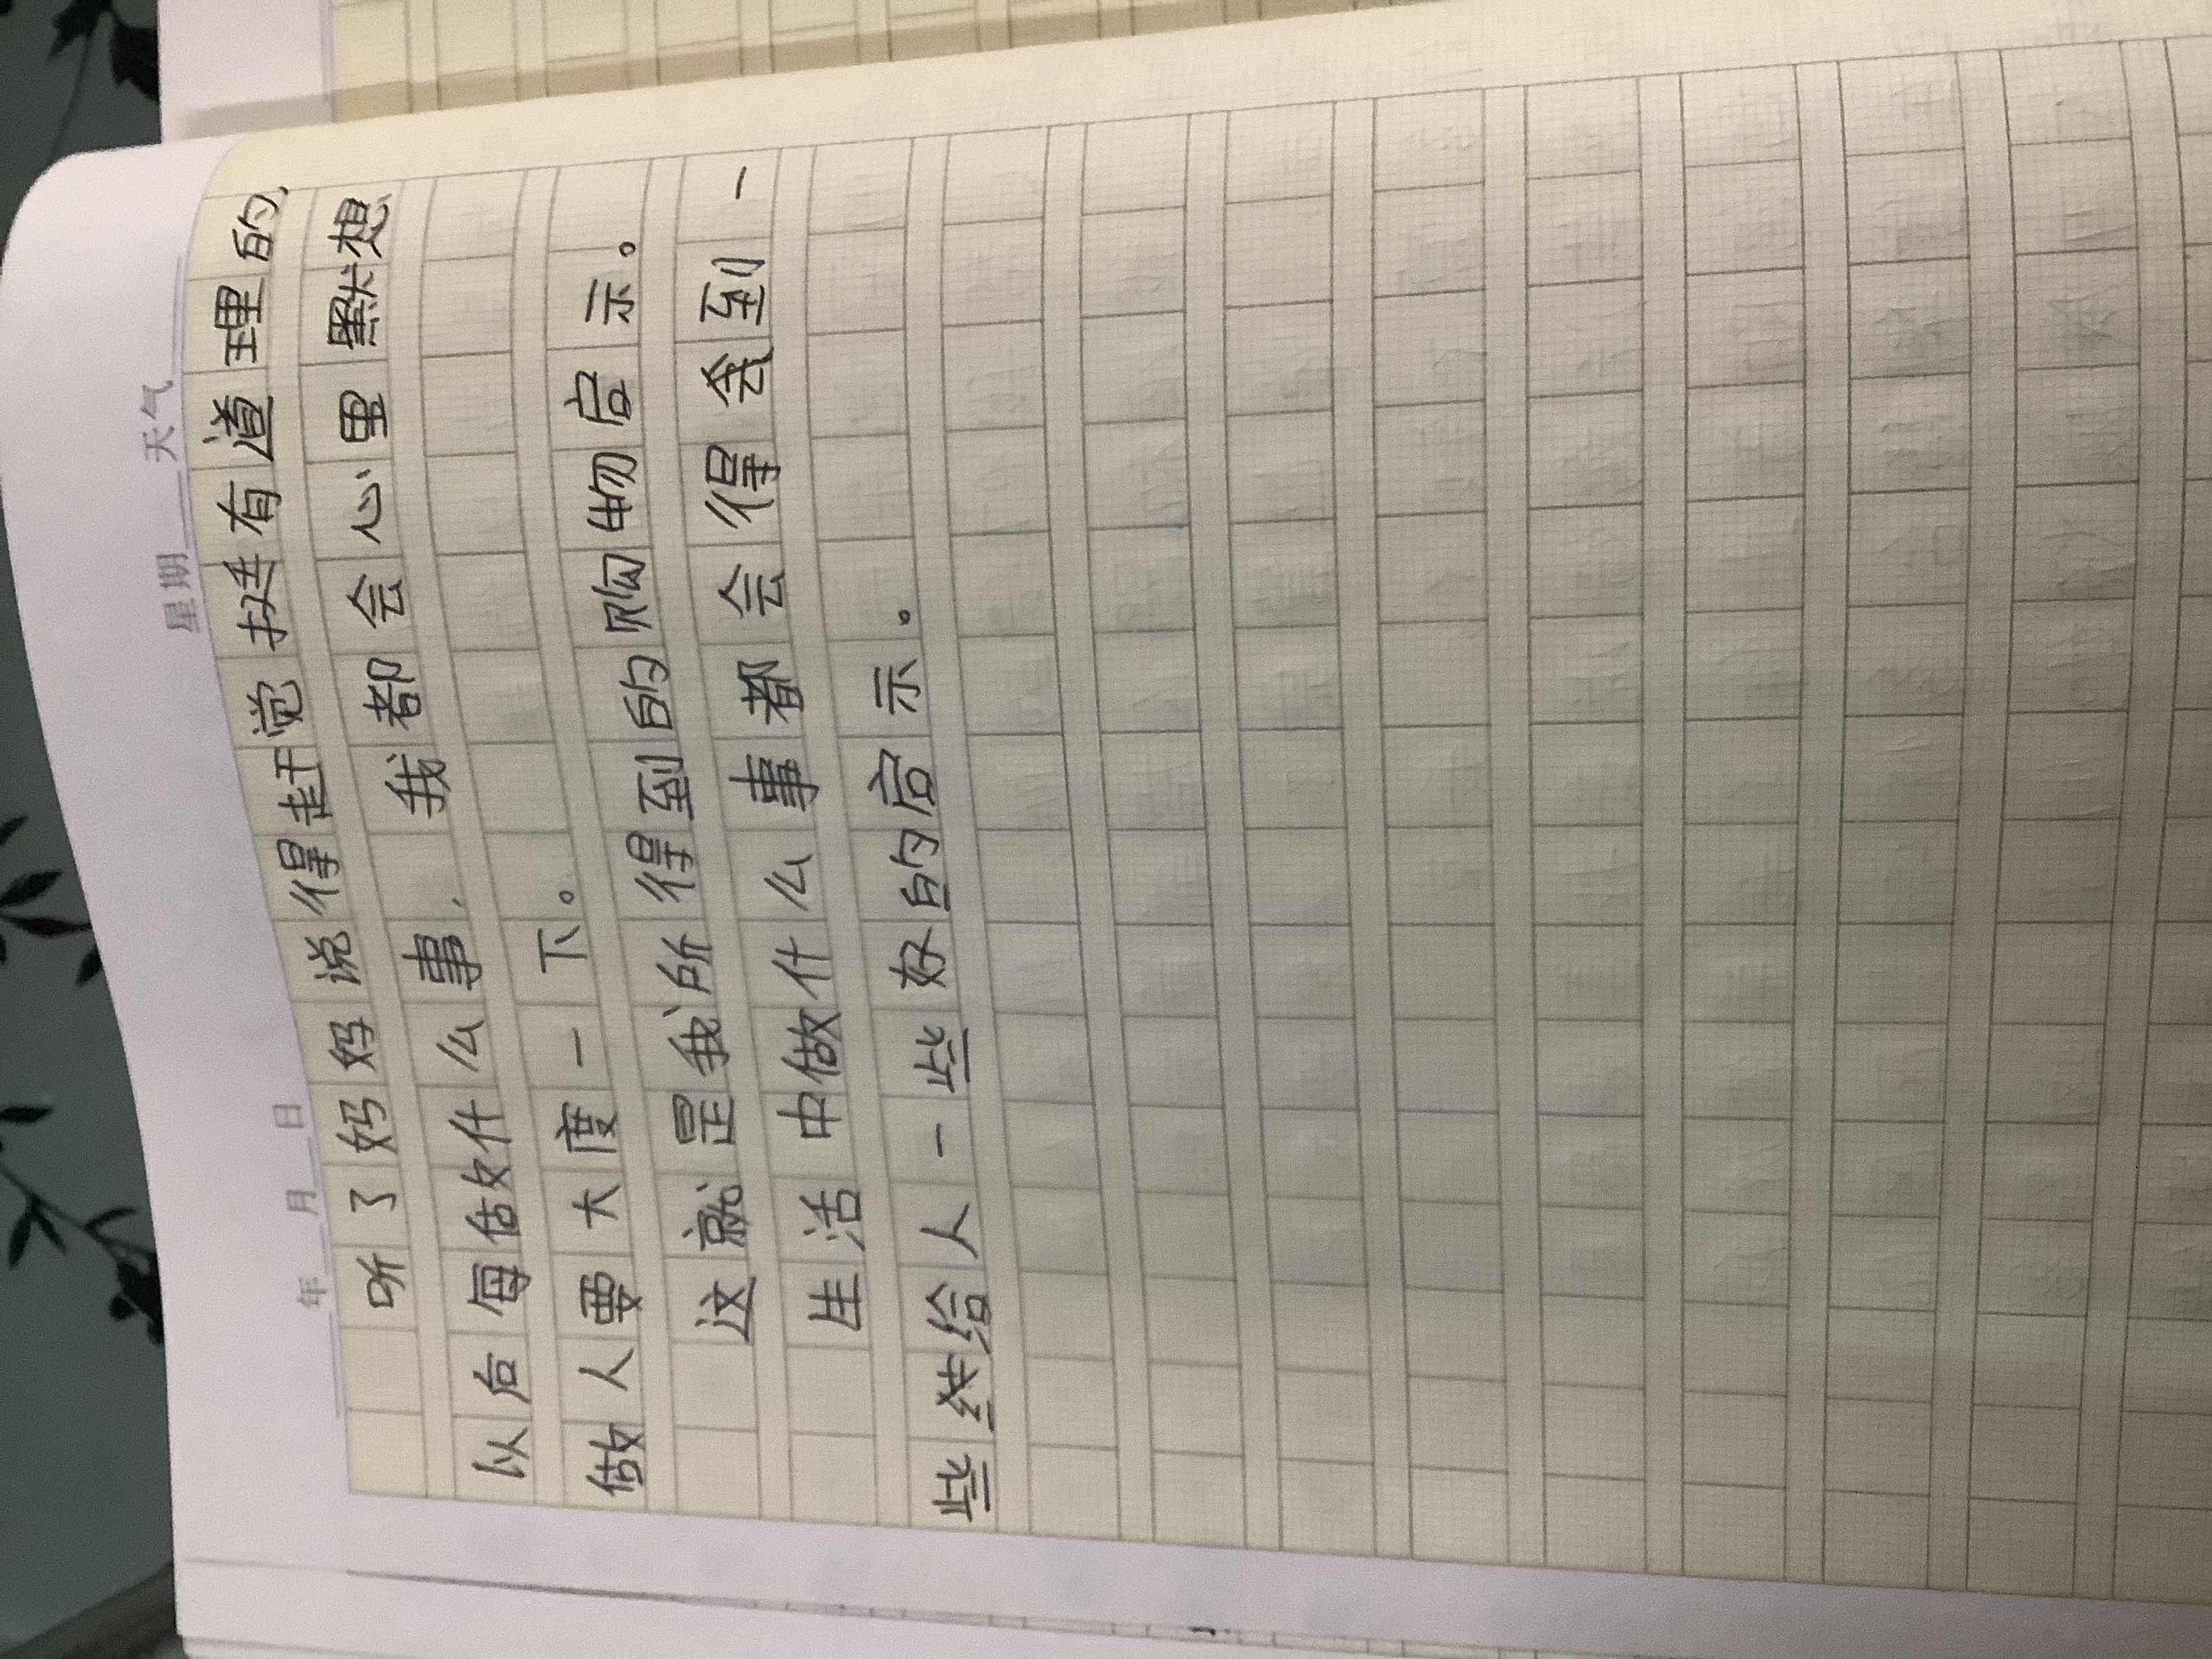 年 月 日 星期 天气
听了妈妈说得赶觉挺有道理的,
以后每做什么事,我都会心里默想
做人要大度一下。
这就是我所得到的购物启示。
生活中做什么事都会得会到一
些给人一些好的启示。